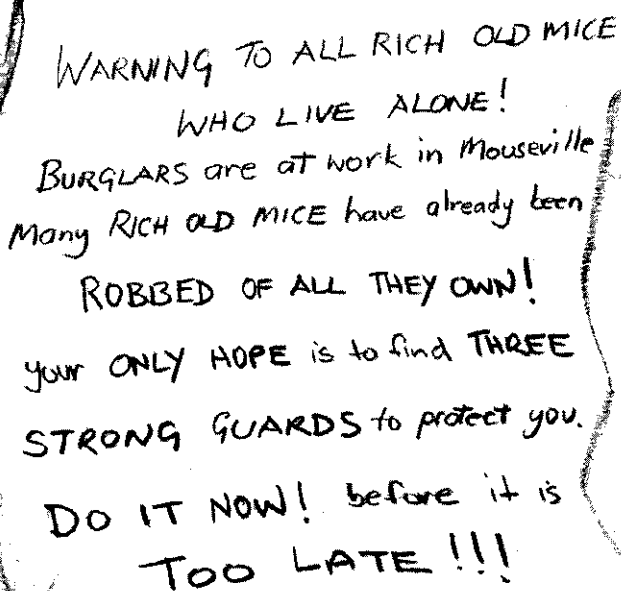 WARNING TO ALL RICH OLD MICE
WHO LIVE ALONE!
BURGLARS are at work in Mouseville
Many RICH OLD MICE have already been
ROBBED OF ALL THEY OWN!
your ONLY HOPE is to find THREE
STRONG GUARDS to protect you.
DO IT NOW! before it is
TOO LATE!!!